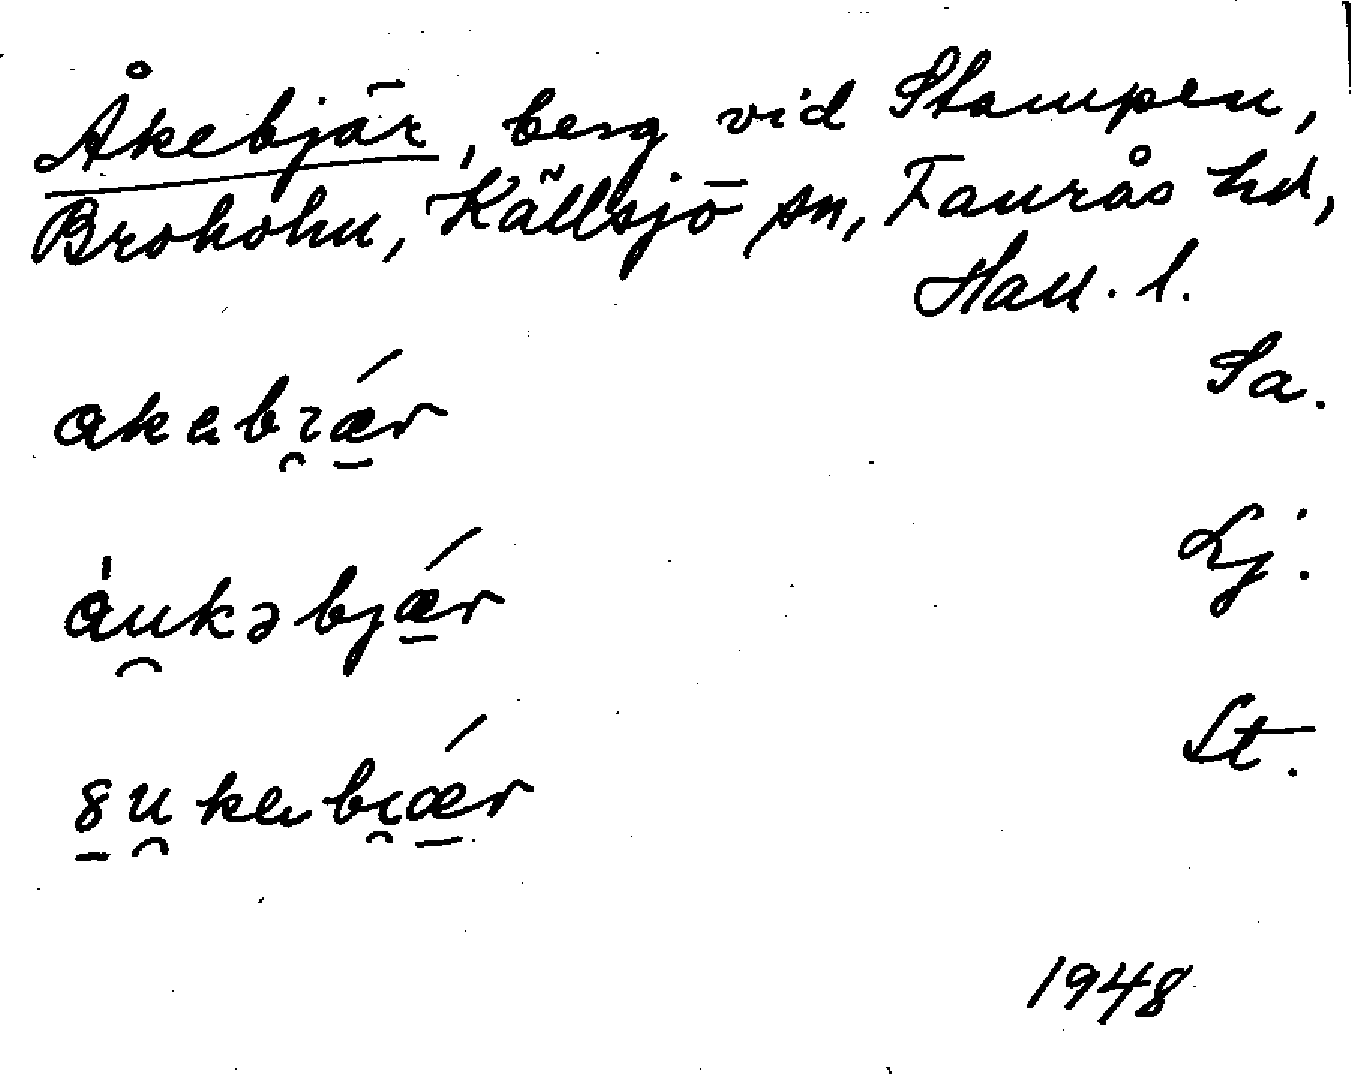 Åkebjär, berg vid Stampen,
Broholm, Källsjö sn, Faurås hd,
Hall. l.
akabı̯ǽ̲r Sa.
a̍u̯kəbjǽ̲r Lj.
8̲u̯kabı̯ǽ̲r St.
1948